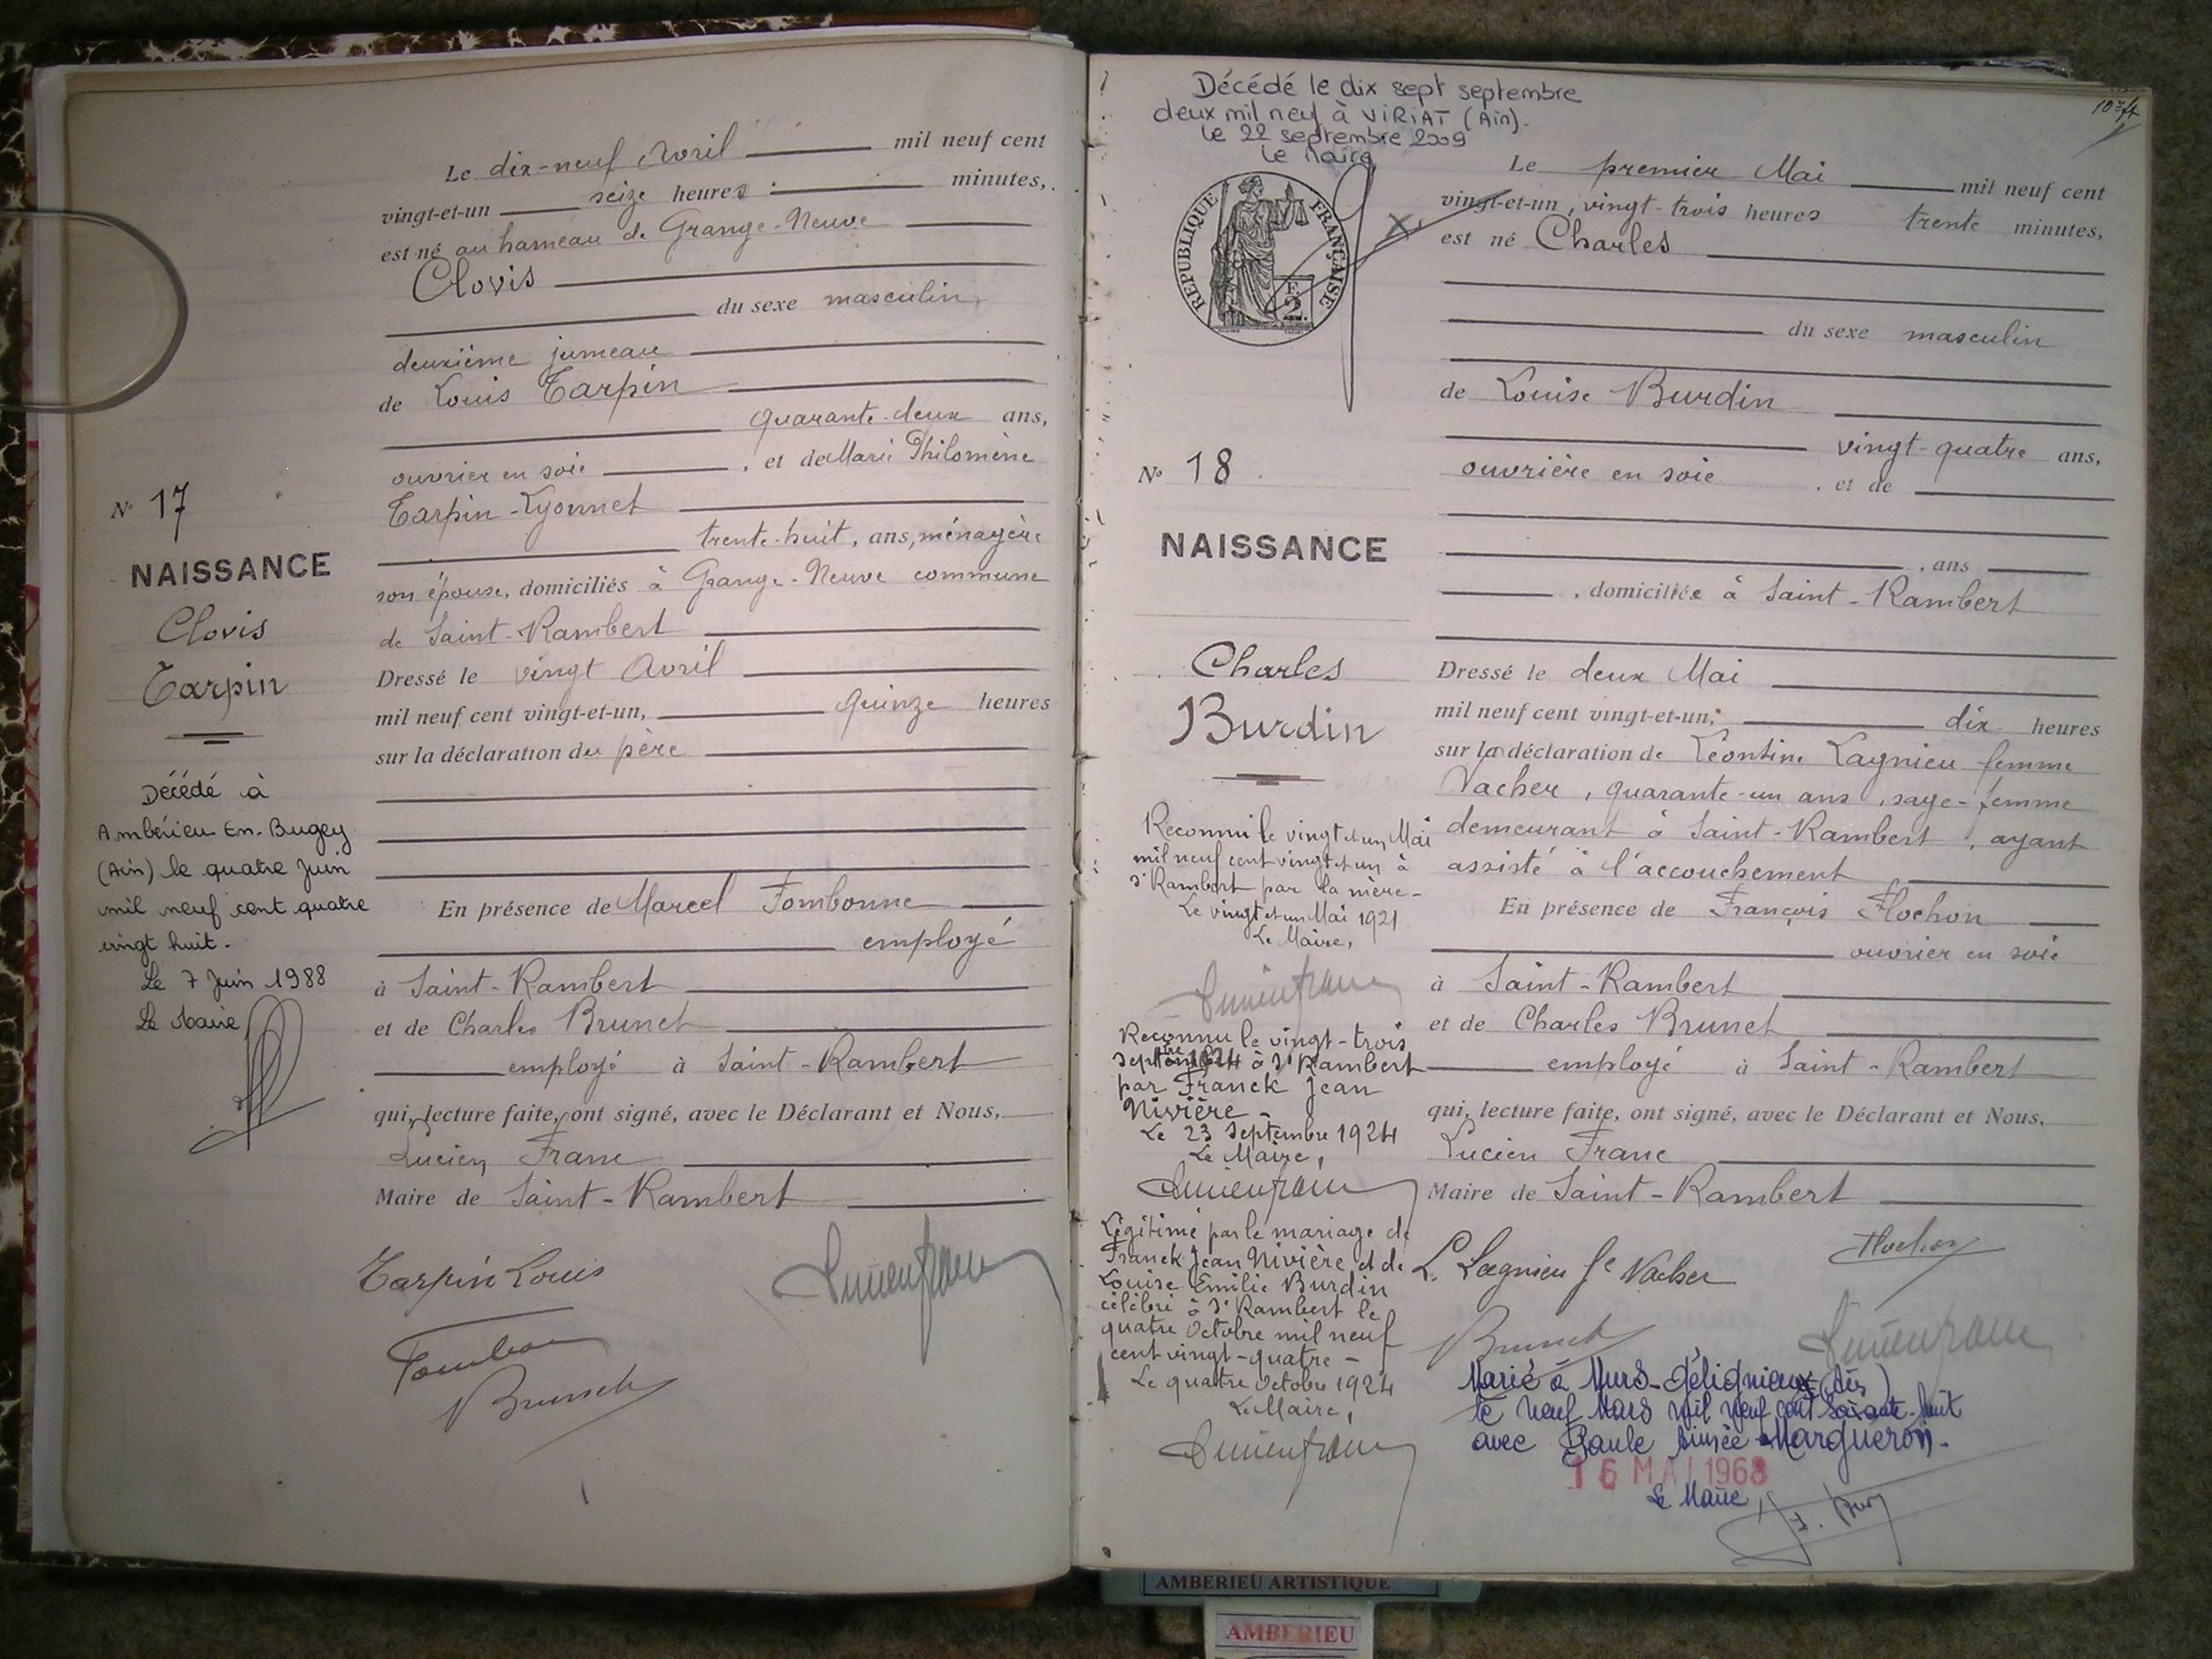 Le dix-neuf Avril mil neuf cent
vingt-et-un seize heures : minutes,
est né au hameau de Grange-Neuve
Clovis
du sexe masculin,
deuxième jumeau
de Louis Tarpin
quarante-deux ans,
ouvrier en soie , et de Marie Philomène
Tarpin-Lyonnet
trente-huit, ans, ménagère
son épouse, domiciliés à Grange-Neuve commune
de Saint-Rambert
Dressé le vingt Avril
mil neuf cent vingt-et-un, quinze heures
sur la déclaration du père
En présence de Marcel Fombonne
employé
à Saint-Rambert
et de Charles Brunet
employé à Saint-Rambert
qui, lecture faite, ont signé, avec le Déclarant et Nous,
Lucien Franc
Maire de Saint-Rambert
Tarpin Louis
Brunet
N° 17
NAISSANCE
Clovis
Tarpin
Décédé à
Ambérieu En-Bugey
(Ain) le quatre Juin
mil neuf cent quatre
vingt huit.
Le 7 Juin 1988
Le Maire
Décédé le dix sept septembre
deux mil neuf à VIRIAT (Ain).
le 22 septembre 2009
Le Maire
REPUBLIQUE FRANÇAISE
F.
2.
N° 18
NAISSANCE
Charles
Burdin
Reconnu le vingt et un Mai
mil neuf cent vingt et un à
St Rambert par la mère-
Le vingt et un Mai 1921
Le Maire,
Reconnu le vingt-trois
Septembre 1924 à St Rambert
par Franck Jean
Nivière -
Le 23 Septembre 1924
Le Maire,
Légitimé par le mariage de
Franck Jean Nivière et de
Louise Emilie Burdin
célébré à St Rambert le
quatre Octobre mil neuf
cent vingt-quatre -
Le quatre Octobre 1924
Le Maire,
Le premier Mai mil neuf cent
vingt-et-un, vingt-trois heures trente minutes,
est né Charles
du sexe masculin
de Louise Burdin
vingt-quatre ans,
ouvrière en soie , et de
, ans
, domiciliée à Saint-Rambert
Dressé le deux Mai
mil neuf cent vingt-et-un, dix heures
sur la déclaration de Léontine Lagnieu femme
Vacher, quarante-un ans, sage-femme
demeurant à Saint-Rambert, ayant
assisté à l'accouchement
En présence de François Hochon
ouvrier en soie
à Saint-Rambert
et de Charles Brunet
employé à Saint-Rambert
qui, lecture faite, ont signé, avec le Déclarant et Nous,
Lucien Franc
Maire de Saint-Rambert
L. Lagnieu fe Vacher
Hochon
Brunet
Marié à Murs-Gélignieux (Ain)
le neuf Mars mil neuf cent soixante-huit
avec Paule Aimée Margueron.
16 MAI 1968
Le Maire,
AMBERIEU ARTISTIQUE
AMBERIEU